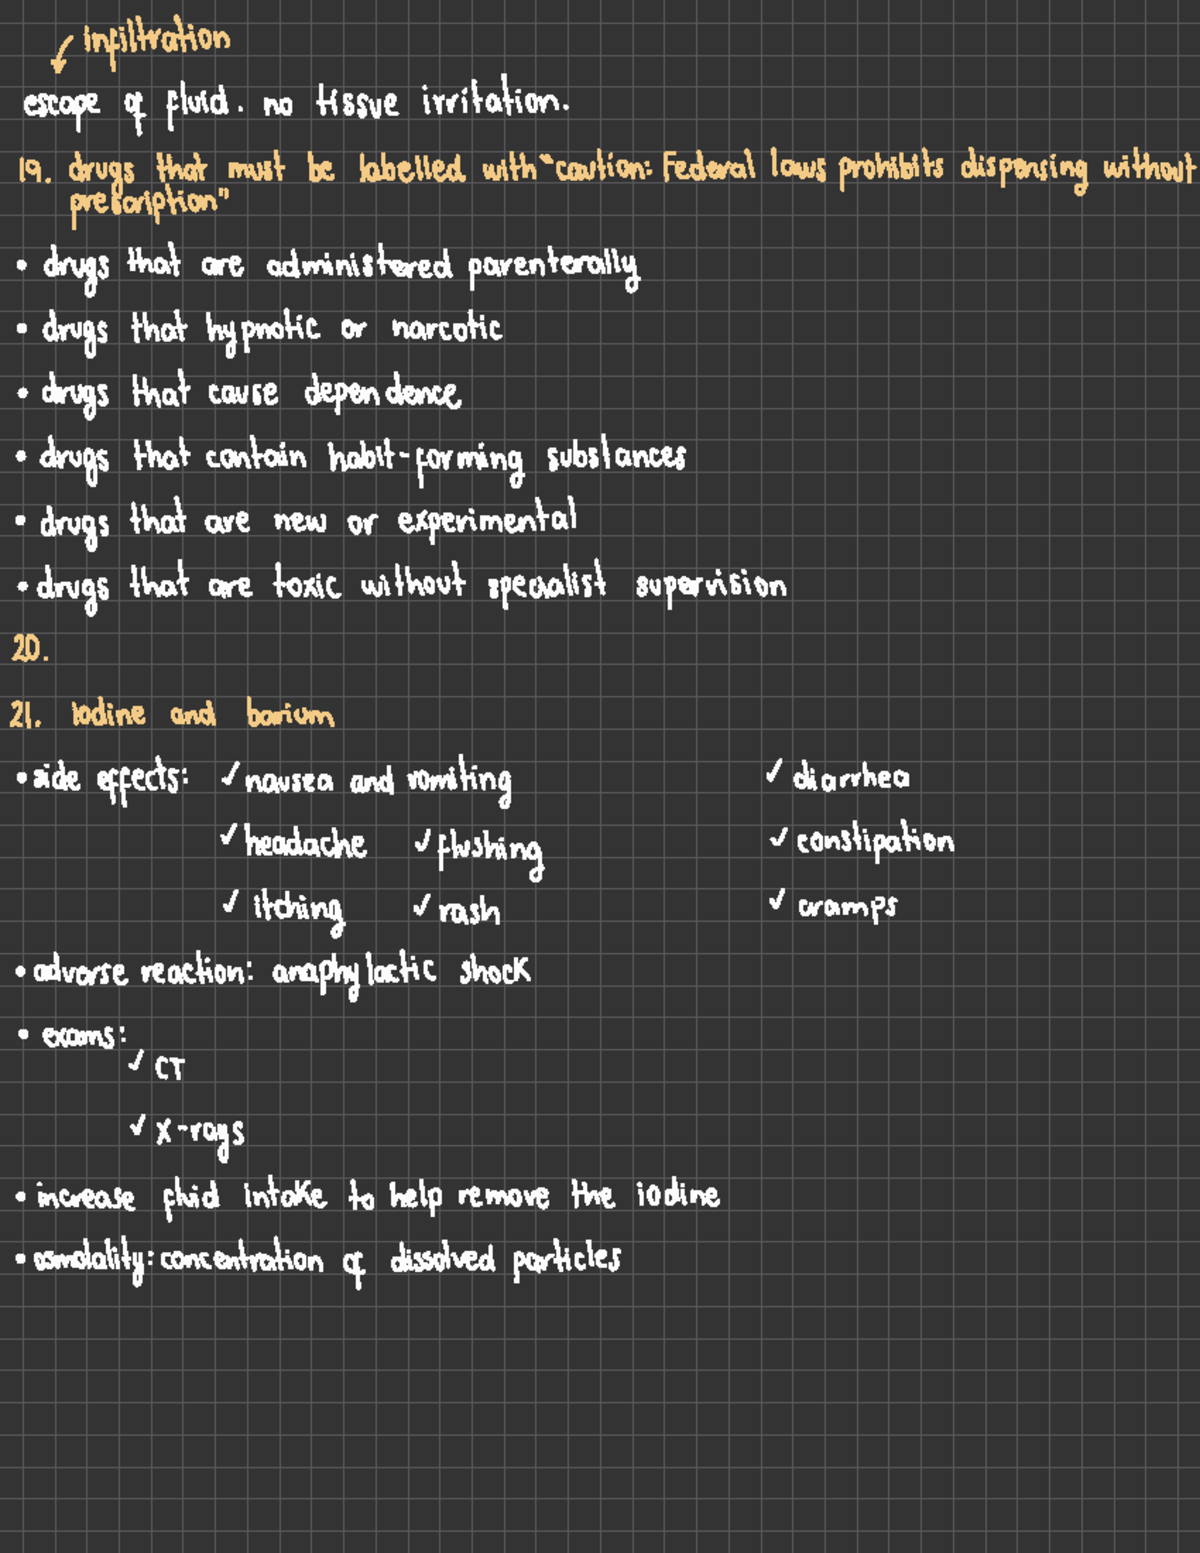 infiltration
escape of fluid. no tissue irritation.
19. drugs that must be labelled with "caution: Federal laws prohibits dispensing without
prescription"
• drugs that are administered parenterally
• drugs that hypnotic or narcotic
• drugs that cause dependence
• drugs that contain habit-forming substances
• drugs that are new or experimental
• drugs that are toxic without specialist supervision
20.
21. Iodine and barium
• side effects: ✓ nausea and vomiting ✓ diarrhea
✓ headache ✓ flushing ✓ constipation
✓ itching ✓ rash ✓ cramps
• adverse reaction: anaphylactic shock
• exams:
✓ CT
✓ x-rays
• increase fluid intake to help remove the iodine
• osmolality: concentration of dissolved particles